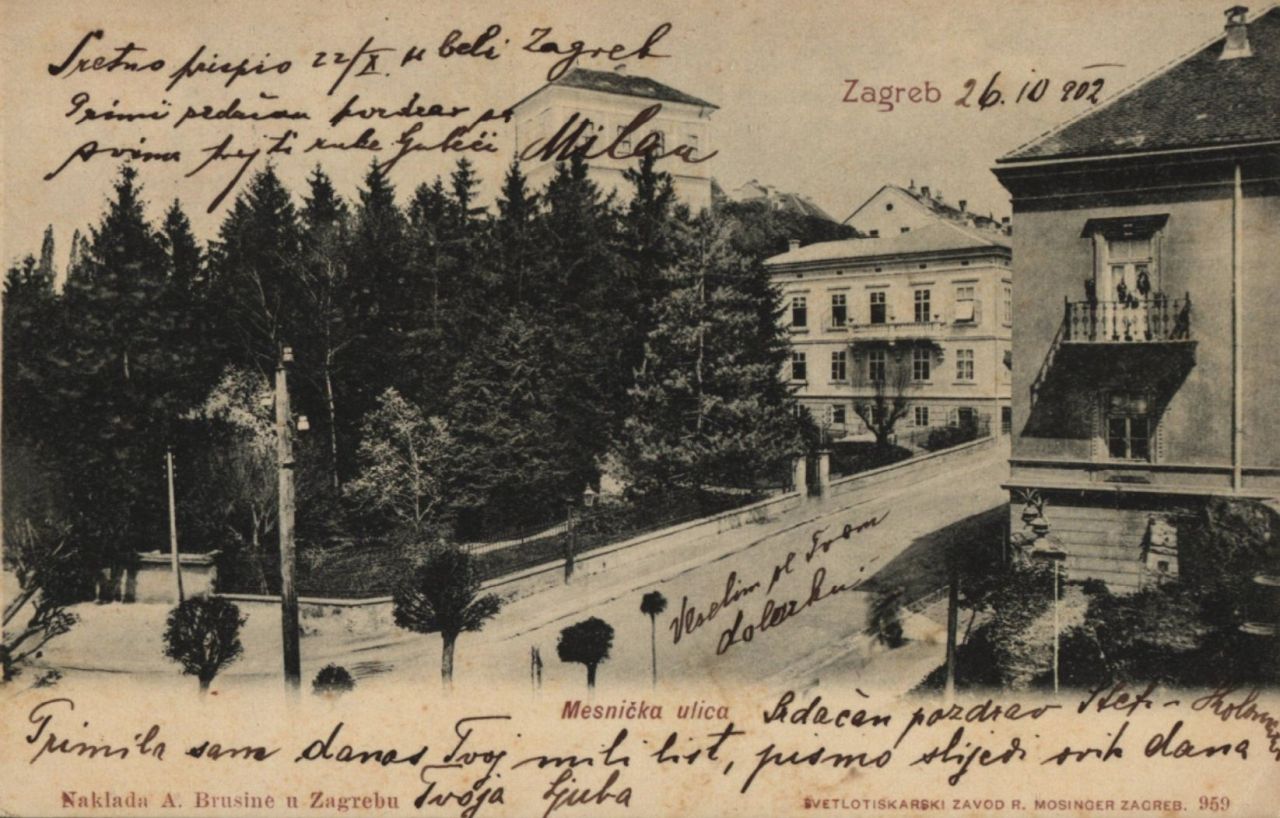 Sretno prispio 22/X. u beli Zagreb
Primi srdačan pozdrav
svima Milan
Zagreb 26. 10 902
Veselim se Tvom
dolazku
Mesnička ulica
Srdačan pozdrav Štefi -
Primila sam danas Tvoj mili list, pismo slijedi ovih dana
Tvoja Ljuba
Naklada A. Brusine u Zagrebu
SVETLOTISKARSKI ZAVOD R. MOSINGER ZAGREB. 959